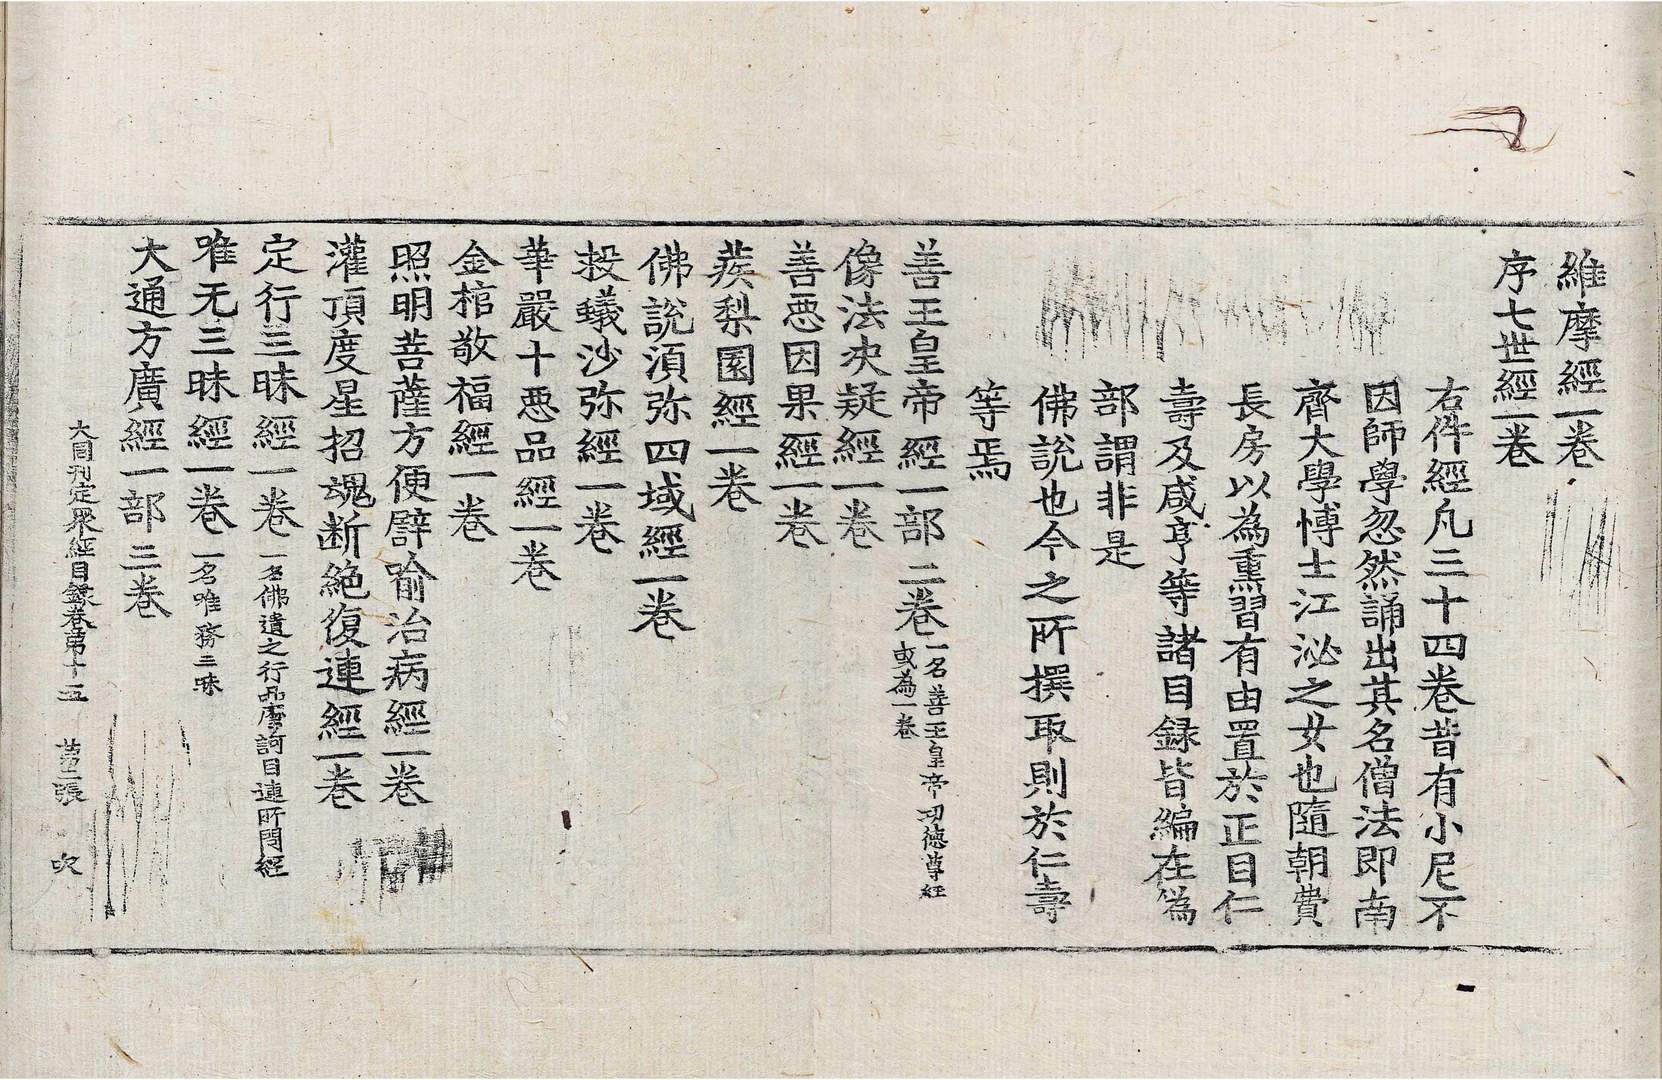 維摩經一卷
序七世經一卷
右件經凡三十四卷昔有小尼不
因師學忽然誦出其名僧法即南
齊大學博士江泌之女也隨朝費
長房以為熏習有由置於正目仁
壽及咸亨等諸目録皆編在偽
部謂非是
佛說也今之所撰取則於仁壽
等焉
善王皇帝經一部二卷一名善王皇帝功德尊經
或為一卷
像法决疑經一卷
善惡因果經一卷
蒺梨園經一卷
佛說湏弥四域經一卷
救蟻沙弥經一卷
華嚴十惡品經一卷
金棺敬福經一卷
照明菩薩方便譬喻治病經一卷
灌頂度星招魂断絕復連經一卷
定行三昧經一卷一名佛遺之行品摩訶目連所問經
唯无三昧經一卷一名唯務三昧
大通方廣經一部三卷
大周刊定眾經目録卷第十五 第三張 吹